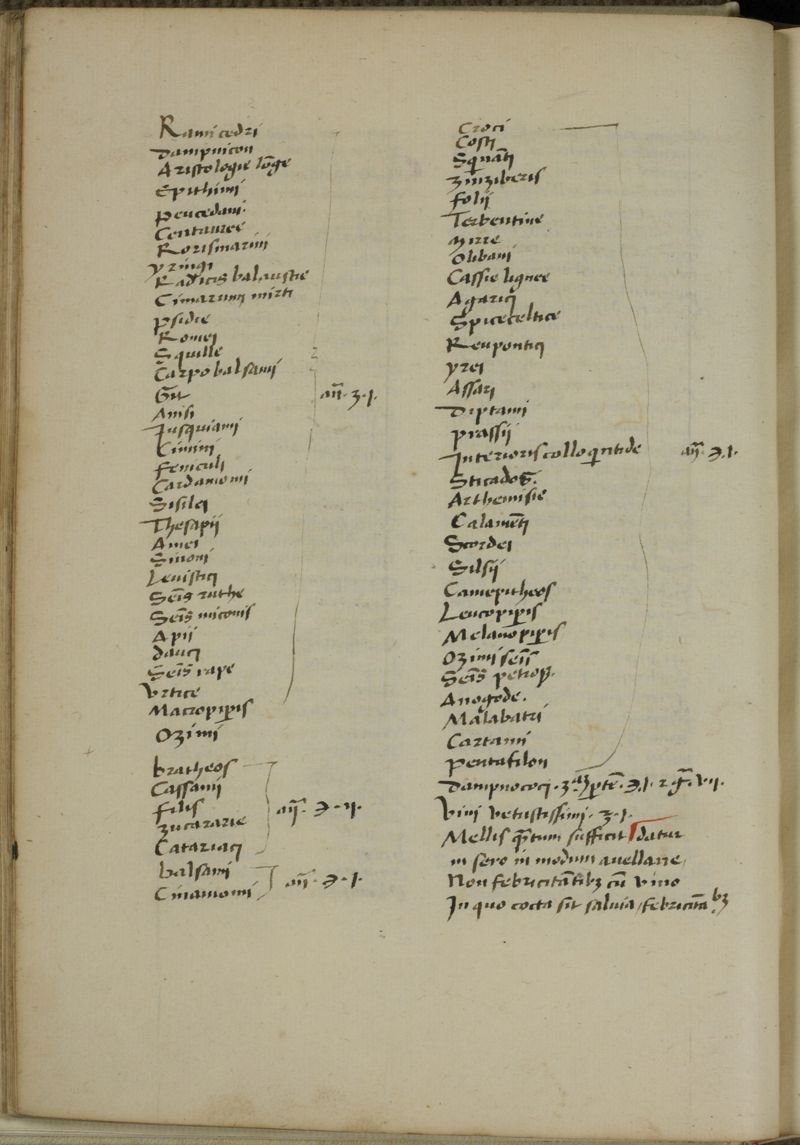 Rami cedri
Dampnicon
Aristologie lõge
Epithimi
peucedani.
Centauree
Rorismarini
yringi
Radicis balaustie
Cimarum mirti
psidie
Romei
Squille
Carpobalsami
Anisi
Jusquiami
Cimini
feniculi
Cardamomi
Sisilei
Thesapij
Amei
Sinoni
Leuistici
Seis ruthe
Seis miconis
Apij
dauci
Seis rape
Vrtice
Macropiperis
Ozimi
bratheos
Cassami
filis
zucararie
Catariaci
balsami
Cinamomi
añ. ʒ. j.
añ. ℈. ij.
añ. ℈. j.
Croci
Costi
Squinãti
zinziberis
folij
Terbentine
Mirre
Olibani
Cassie lignee
Agarici
Spiceceltice
Reupontici
yrei
Assari
Diptami
prassij
Interioris colloqintide
Sticados.
Arthemisie
Calamẽti
Scordei
Silsij
Camepitheos
Leucopiperis
Melanopiperis
Ozimi
Seis petros.
Anogode.
Malabatri
Cartami
pentafilon
añ. ℈. j.
Dampnococi. ℈. j. vij.
Vini vetustissimi. ʒ. j.
Mellis qtum sufficit datur
in sero in modum auellane,
Non febricitãtibꝫ cũ vino
In quo cocta sit saluia, febricitãtibꝫ